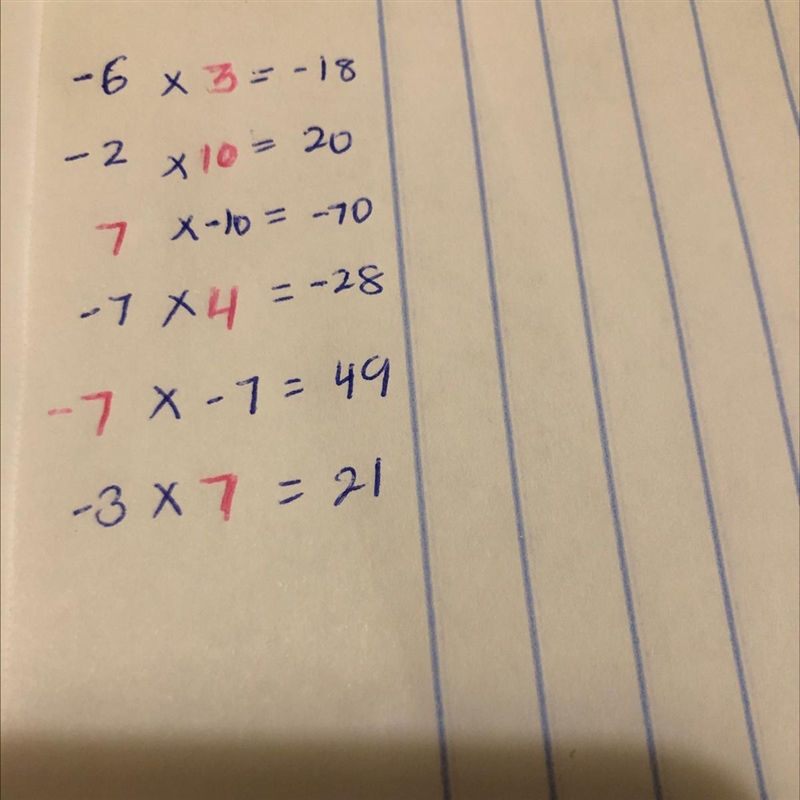 -6 x 3 = -18
-2 x 10 = 20
7 x -10 = -70
-7 x 4 = -28
-7 x -7 = 49
-3 x 7 = 21